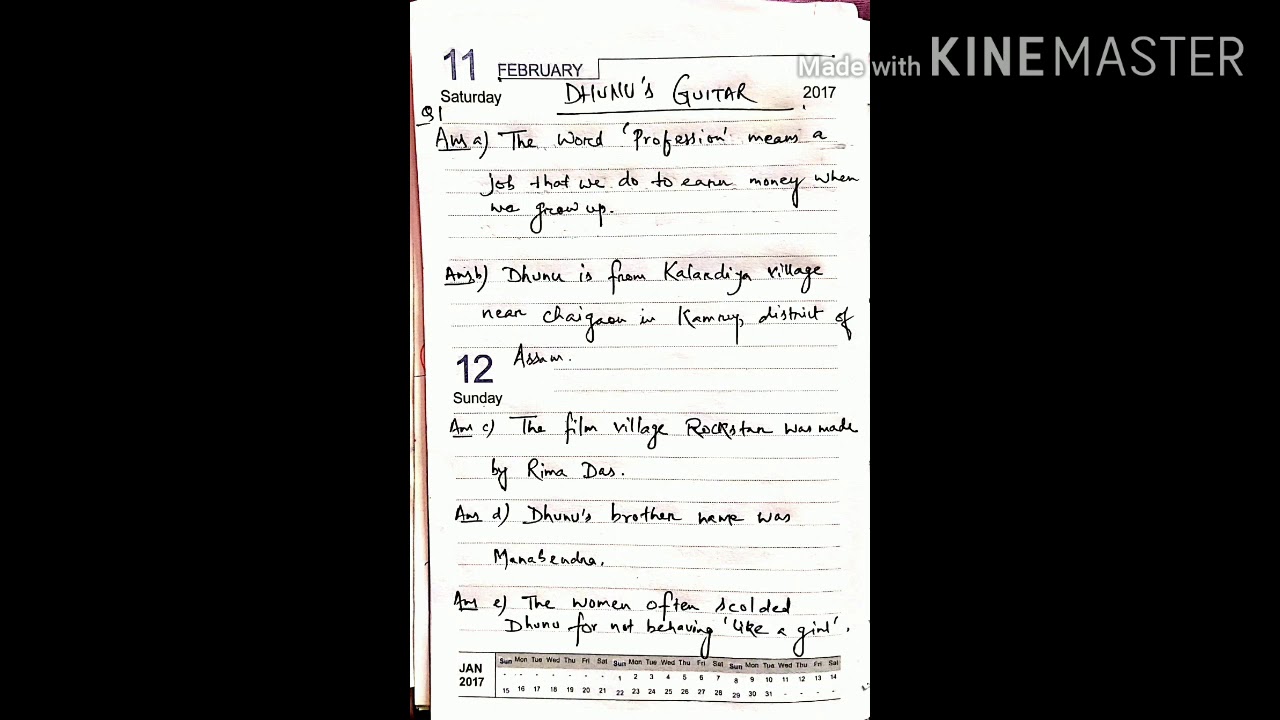 Made with KINEMASTER
11 FEBRUARY
Saturday DHUNU'S GUITAR 2017
Q1
Ans a) The word 'Profession' means a
job that we do to earn money when
we grow up.
Ans b) Dhunu is from Kalardiya village
near chaigaon in Kamrup district of
Assam.
12
Sunday
Ans c) The film village Rockstar was made
by Rima Das.
Ans d) Dhunu's brother name was
Manabendra.
Ans e) The women often scolded
Dhunu for not behaving 'like a girl'.
JAN
2017
Sun Mon Tue Wed Thu Fri Sat Sun Mon Tue Wed Thu Fri Sat Sun Mon Tue Wed Thu Fri Sat
- - - - - - - 1 2 3 4 5 6 7 8 9 10 11 12 13 14
15 16 17 18 19 20 21 22 23 24 25 26 27 28 29 30 31 - - - -